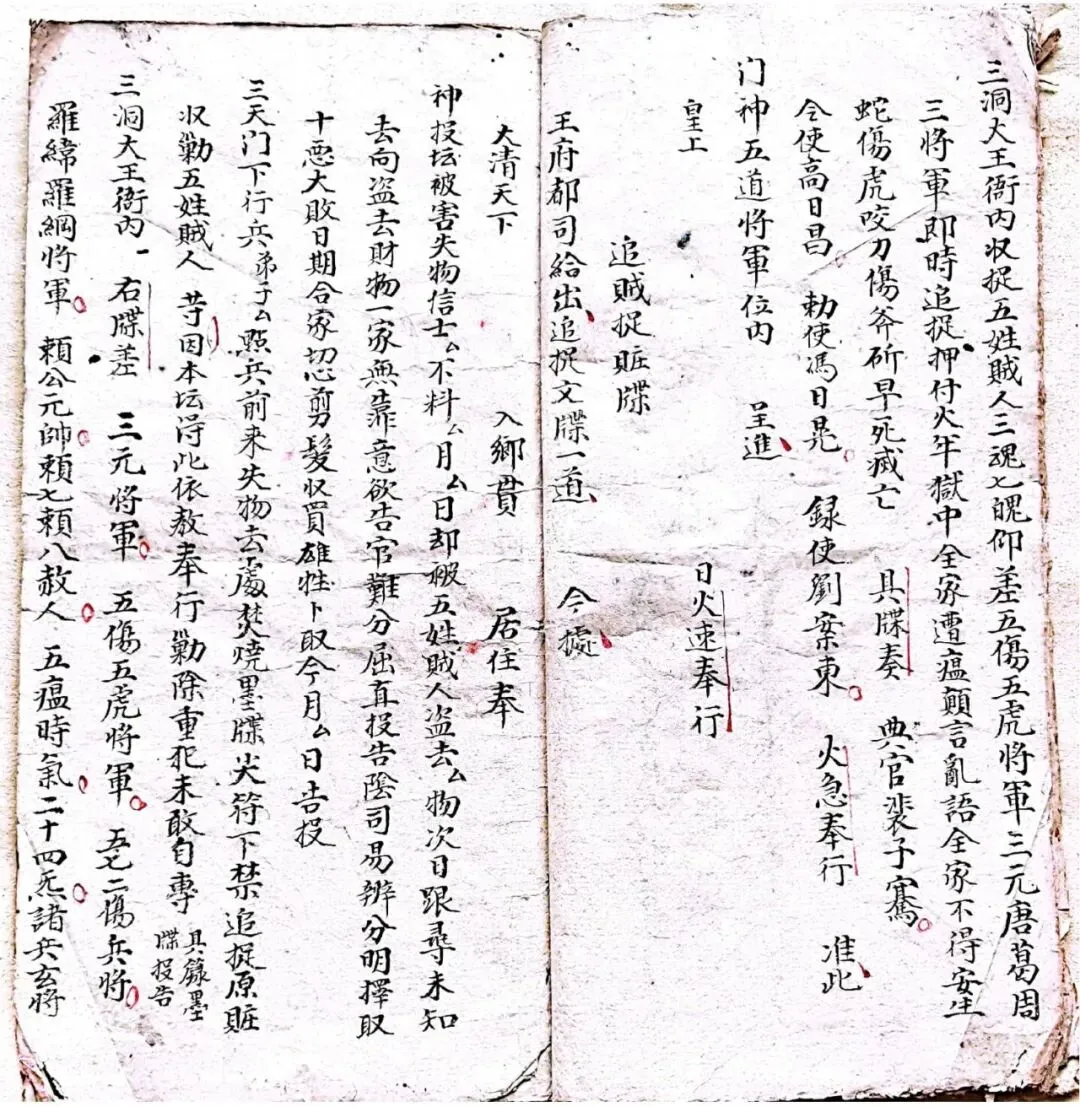 三洞大王衙内収捉五姓賊人三魂七魄仰差五傷五虎將軍三元唐葛周
三將軍即時追捉押付火牢獄中全家遭瘟顛言亂語全家不得安生
蛇傷虎咬刀傷斧斫早死滅亡 具牒奏 典官裴子騫
令使高日昌 勅使馮日晃 録使劉案東 火急奉行 准此
门神五道將軍位内 呈進
皇上 日火速奉行
追賊捉賍牒
王府都司給出追捉文牒一道 今據
大清天下 入鄉貫 居住奉
神投坛被害失物信士厶不料厶月厶日却被五姓賊人盗去厶物次日跟尋未知
去向盗去財物一家無靠意欲告官難分屈直投告陰司易辨分明擇取
十悪大敗日期合家切忿剪髮収買雄牲卜取今月厶日告投
三天门下行兵弟子厶點兵前来失物去處焚燒墨牒火符下禁追捉原賍
収勦五姓賊人 苛因本坛得此依教奉行勦除重犯未敢自專 具籙墨牒投告
三洞大王衙内 右牒差 三元將軍 五傷五虎將軍 五七二傷兵將
羅緯羅綱將軍 賴公元帥賴七賴八赦人 五瘟時氣二十四炁諸兵玄將